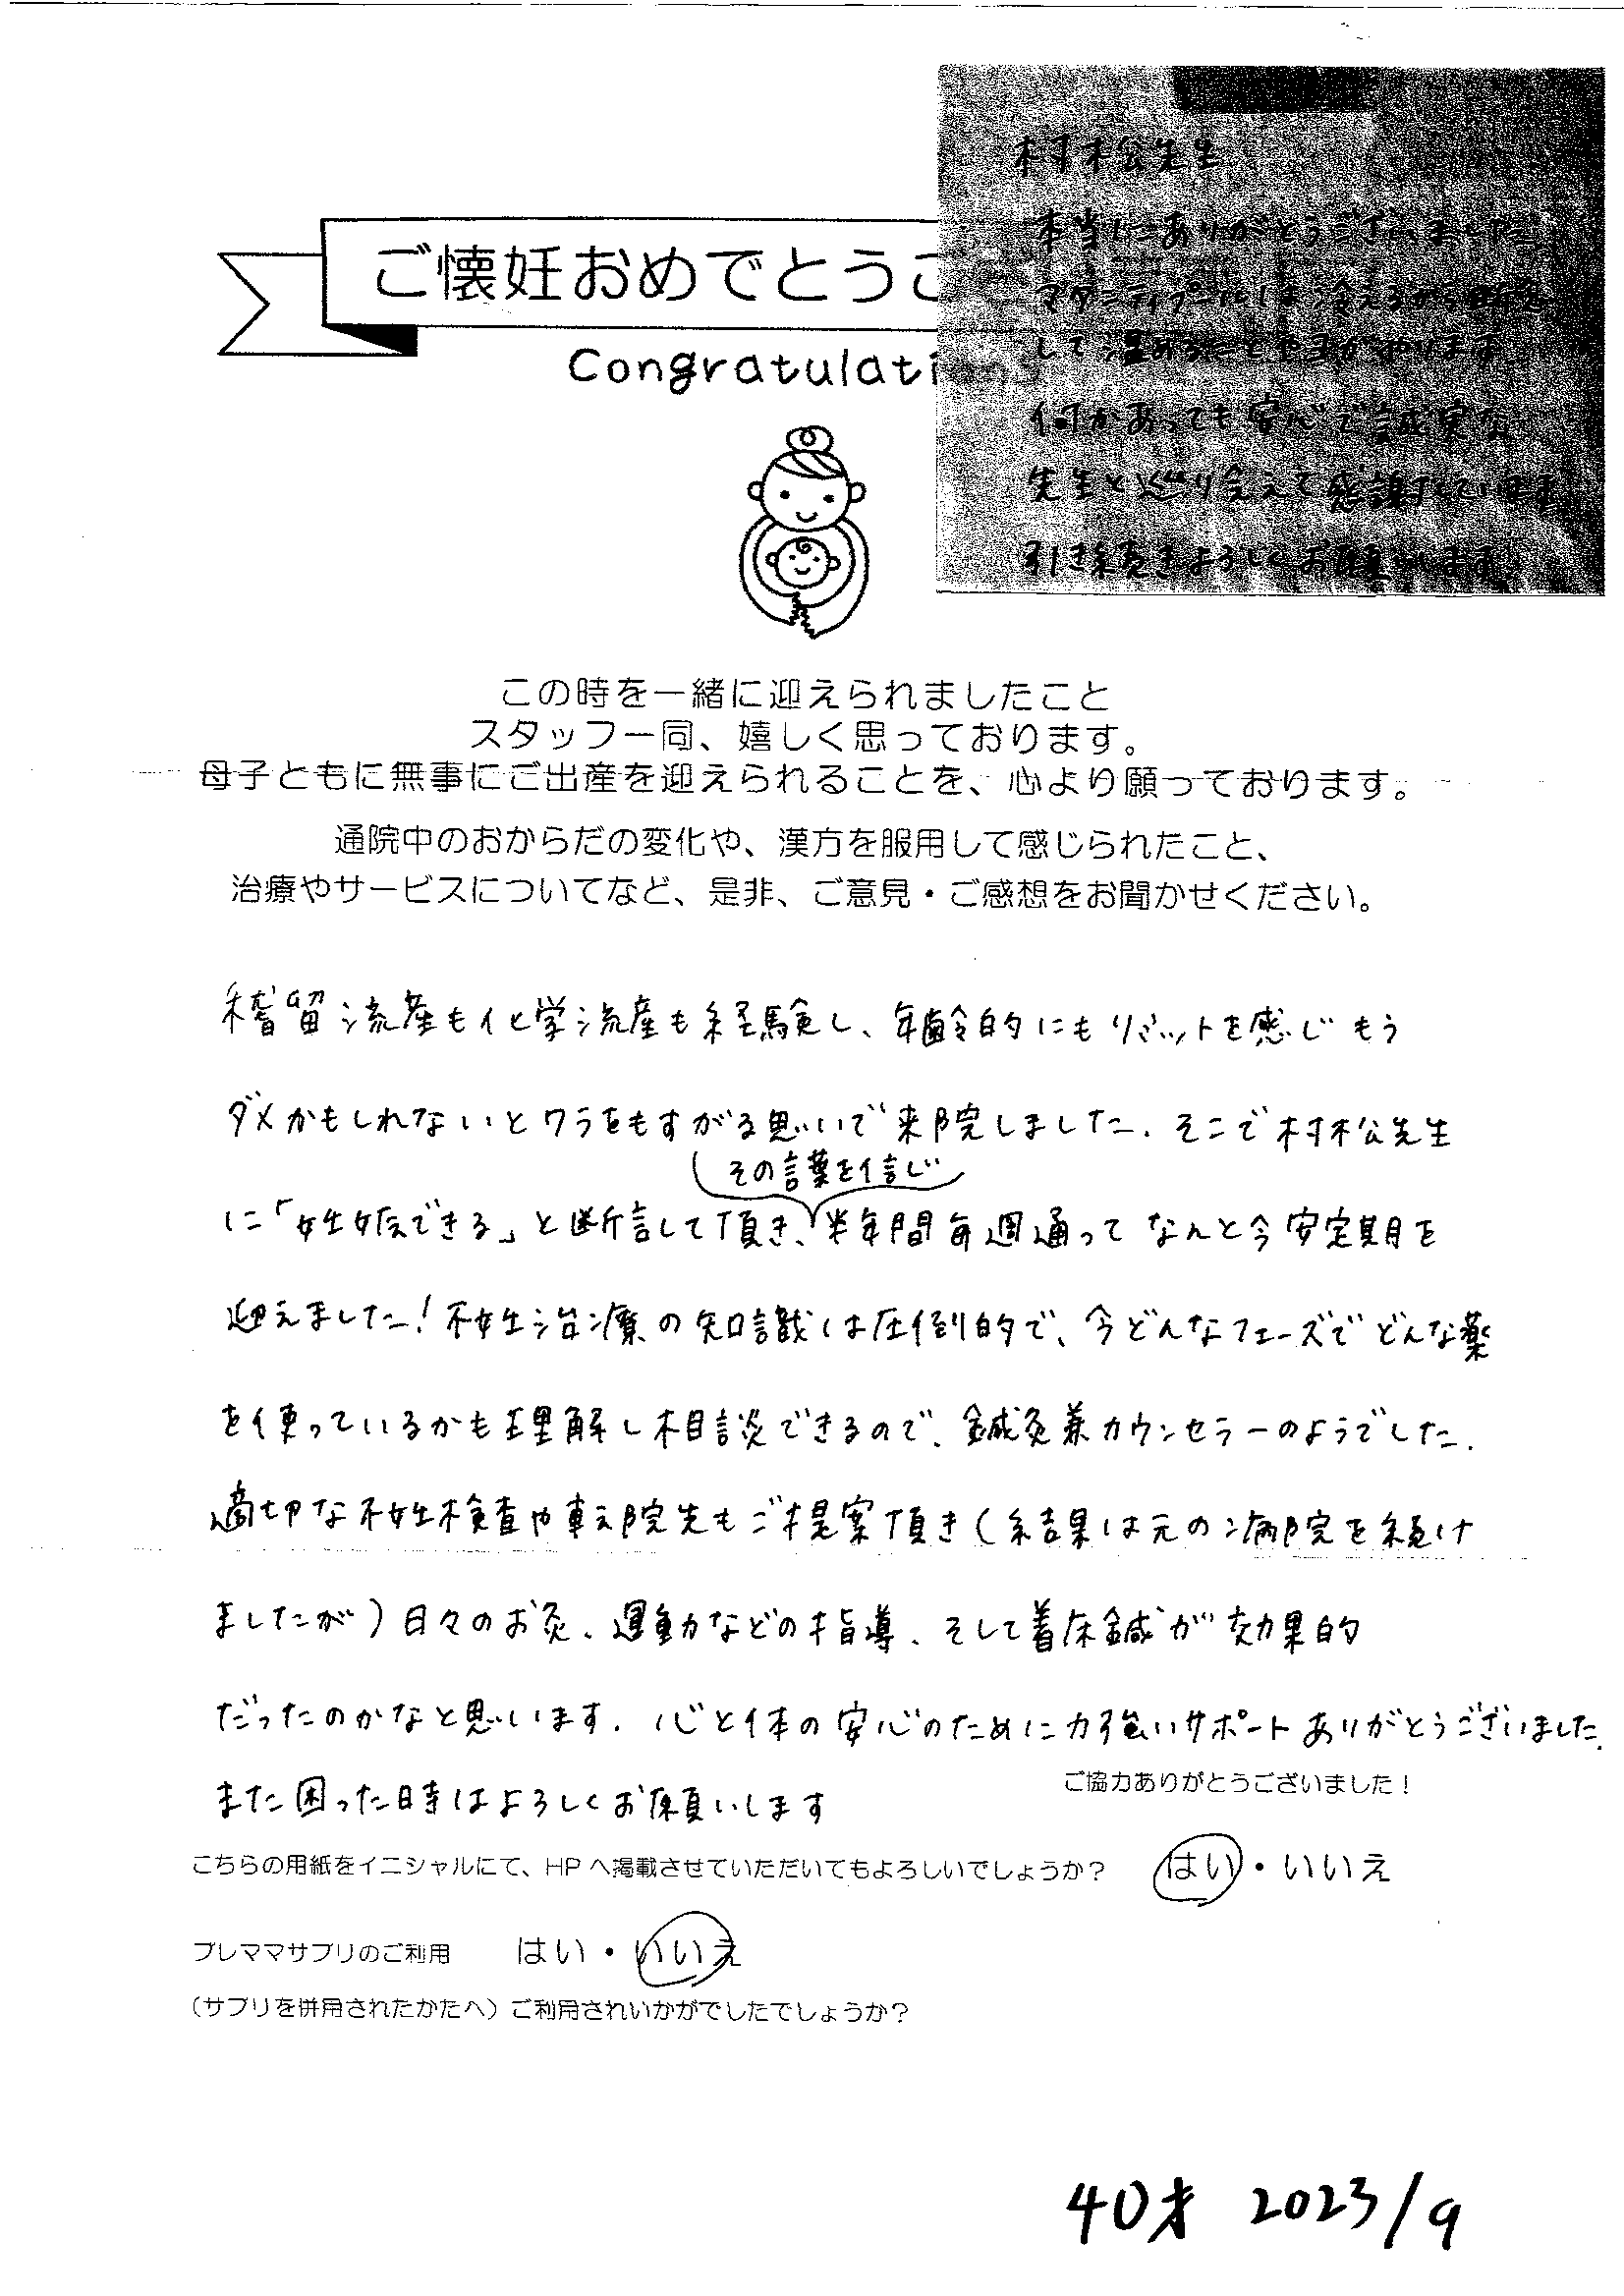 村松先生
本当にありがとうございました。
マタニティプールは冷えるから断念
して温めることやヨガやります。
何かあっても安心で誠実な
先生と巡り会えて感謝しています
引き続きよろしくお願いします。
ご懐妊おめでとうご
Congratulations
この時を一緒に迎えられましたこと
スタッフ一同、嬉しく思っております。
母子ともに無事にご出産を迎えられることを、心より願っております。
通院中のおからだの変化や、漢方を服用して感じられたこと、
治療やサービスについてなど、是非、ご意見・ご感想をお聞かせください。
稽留流産も化学流産も経験し、年齢的にもリミットを感じもう
ダメかもしれないとワラをもすがる思いで来院しました。そこで村松先生
その言葉を信じ
に「妊娠できる」と断言して頂き、半年間毎週通ってなんと今安定期を
迎えました!不妊治療の知識は圧倒的で、今どんなフェーズでどんな薬
を使っているかも理解し相談できるので、鍼灸兼カウンセラーのようでした。
適切な不妊検査や転院先もご提案頂き(結果は元の病院を続け
ましたが)日々のお灸、運動などの指導、そして着床鍼が効果的
だったのかなと思います。心と体の安心のために力強いサポートありがとうございました。
ご協力ありがとうございました!
また困った時はよろしくお願いします
こちらの用紙をイニシャルにて、HPへ掲載させていただいてもよろしいでしょうか? はい・いいえ
プレママサプリのご利用 はい・いいえ
(サプリを併用されたかたへ)ご利用されいかがでしたでしょうか?
40才 2023/9